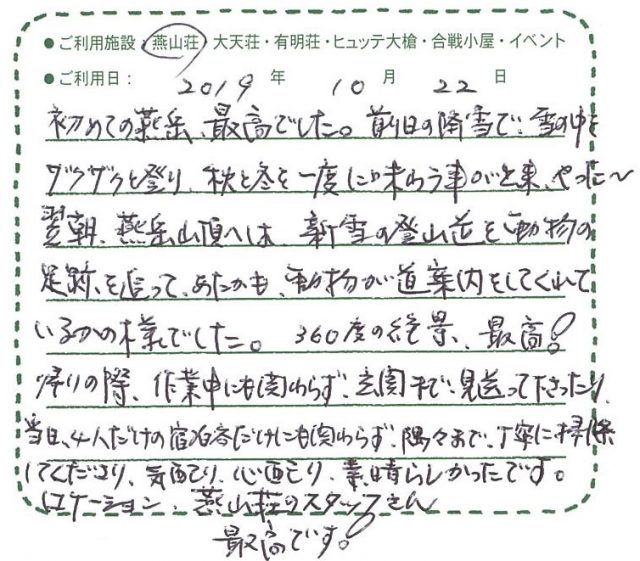 ● ご利用施設：燕山荘・大天荘・有明荘・ヒュッテ大槍・合戦小屋・イベント
● ご利用日： 2019 年 10 月 22 日
初めての燕岳、最高でした。前日の降雪で、雪の中を
ザクザクと登り、秋と冬を一度に味わう事が出来、やった〜
翌朝、燕岳山頂へは 新雪の登山道を動物の
足跡を辿って、あたかも、動物が道案内をしてくれて
いるかの様でした。 360度の絶景、最高！
帰りの際、作業中にも関わらず、玄関まで見送って下さったり、
当日、4人だけの宿泊客だけにも関わらず、隅々まで、丁寧に掃除
してくださり、気配り、心配り、素晴らしかったです。
ロケーション、燕山荘のスタッフさん
最高です！